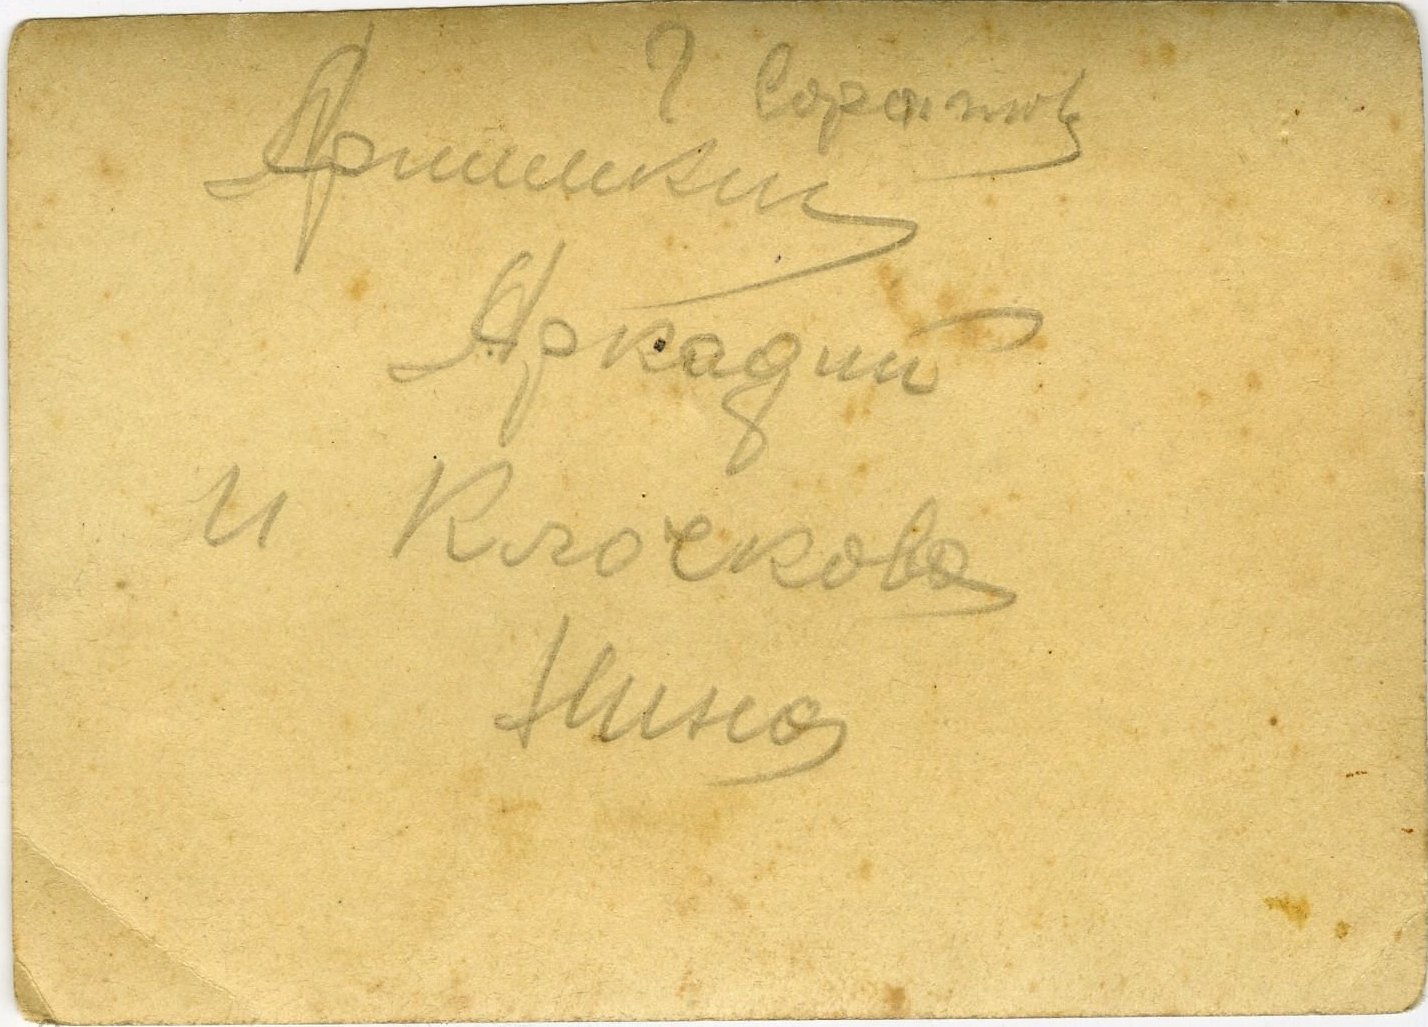 Г Саратов
Аркадий
и Клочкова
Нина